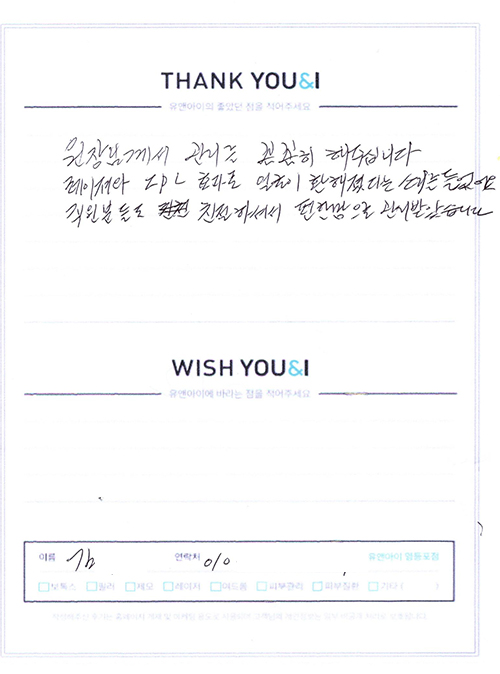 THANK YOU&I
유앤아이의 좋았던 점을 적어주세요
원장님께서 관리를 꼼꼼히 해주십니다
레이져와 IPL 효과로 얼굴이 환해졌다는 소리를 들었어요
직원분들도 친절하셔서 편한맘으로 관리받았습니다
WISH YOU&I
유앤아이에 바라는 점을 적어주세요
이름 김 연락처 010 유앤아이 영등포점
보톡스 필러 제모 레이저 여드름 피부관리 피부질환 기타 ( )